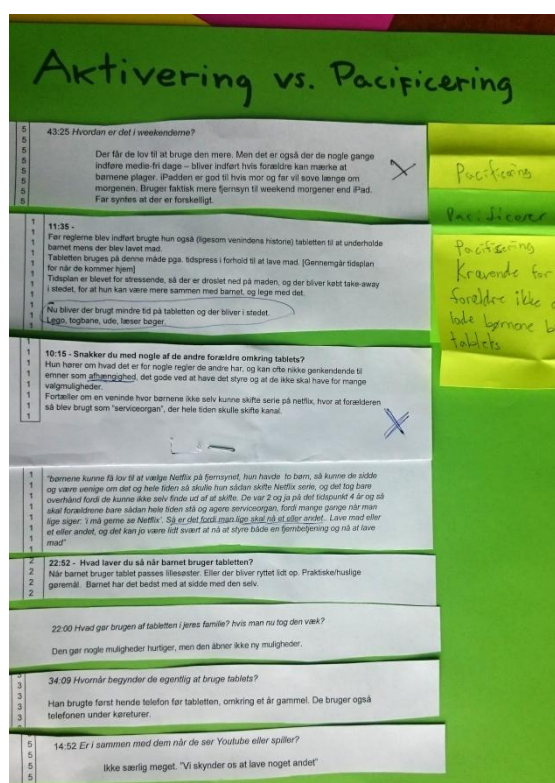 Aktivering vs. Pacificering
5
5
5
5
5
5
43:25 Hvordan er det i weekenderne?
Der får de lov til at bruge den mere. Men det er også der de nogle gange
indføre medie-fri dage – bliver indført hvis forældre kan mærke at
børnene plager. iPadden er god til hvis mor og far vil sove længe om
morgenen. Bruger faktisk mere fjernsyn til weekend morgener end iPad.
Far syntes at der er forskelligt.
X
Pacificering
Pacificerer
Pacificering
Krævende for
forældre ikke
lade børnene
tablets
1
1
1
1
1
1
1
1
11:35 -
Før reglerne blev indført brugte hun også (ligesom venindens historie) tabletten til at underholde
barnet mens der blev lavet mad.
Tabletten bruges på denne måde pga. tidspress i forhold til at lave mad. [Gennemgår tidsplan
for når de kommer hjem]
Tidsplan er blevet for stressende, så der er droslet ned på maden, og der bliver købt take-away
i stedet, for at hun kan være mere sammen med barnet, og lege med det.
Nu bliver der brugt mindre tid på tabletten og der bliver i stedet.
Lego, togbane, ude, læser bøger.
1
1
1
1
1
1
1
10:15 - Snakker du med nogle af de andre forældre omkring tablets?
Hun hører om hvad det er for nogle regler de andre har, og kan ofte nikke genkendende til
emner som afhængighed, det gode ved at have det styre og at de ikke skal have for mange
valgmuligheder.
Fortæller om en veninde hvor børnene ikke selv kunne skifte serie på netflix, hvor at forælderen
så blev brugt som "serviceorgan", der hele tiden skulle skifte kanal.
X
1
1
1
1
1
1
1
"børnene kunne få lov til at vælge Netflix på fjernsynet, hun havde to børn, så kunne de sidde
og være uenige om det og hele tiden så skulle hun sådan skifte Netflix serie, og det tog bare
overhånd fordi de kunne ikke selv finde ud af at skifte. De var 2 og ja på det tidspunkt 4 år og så
skal forældrene bare sådan hele tiden stå og agere serviceorgan, fordi mange gange når man
lige siger: 'i må gerne se Netflix'. Så er det fordi man lige skal nå et eller andet. Lave mad eller
et eller andet, og det kan jo være lidt svært at nå at styre både en fjernbetjening og nå at lave
mad"
2
2
2
2
22:52 - Hvad laver du så når barnet bruger tabletten?
Når barnet bruger tablet passes lillesøster. Eller der bliver ryttet lidt op. Praktiske/huslige
gøremål. Barnet har det bedst med at sidde med den selv.
22:00 Hvad gør brugen af tabletten i jeres familie? hvis man nu tog den væk?
Den gør nogle muligheder hurtiger, men den åbner ikke ny muligheder.
3
3
3
3
34:09 Hvornår begynder de egentlig at bruge tablets?
Han brugte først hende telefon før tabletten, omkring et år gammel. De bruger også
telefonen under køreturer.
5
5
5
14:52 Er i sammen med dem når de ser Youtube eller spiller?
Ikke særlig meget. "Vi skynder os at lave noget andet"